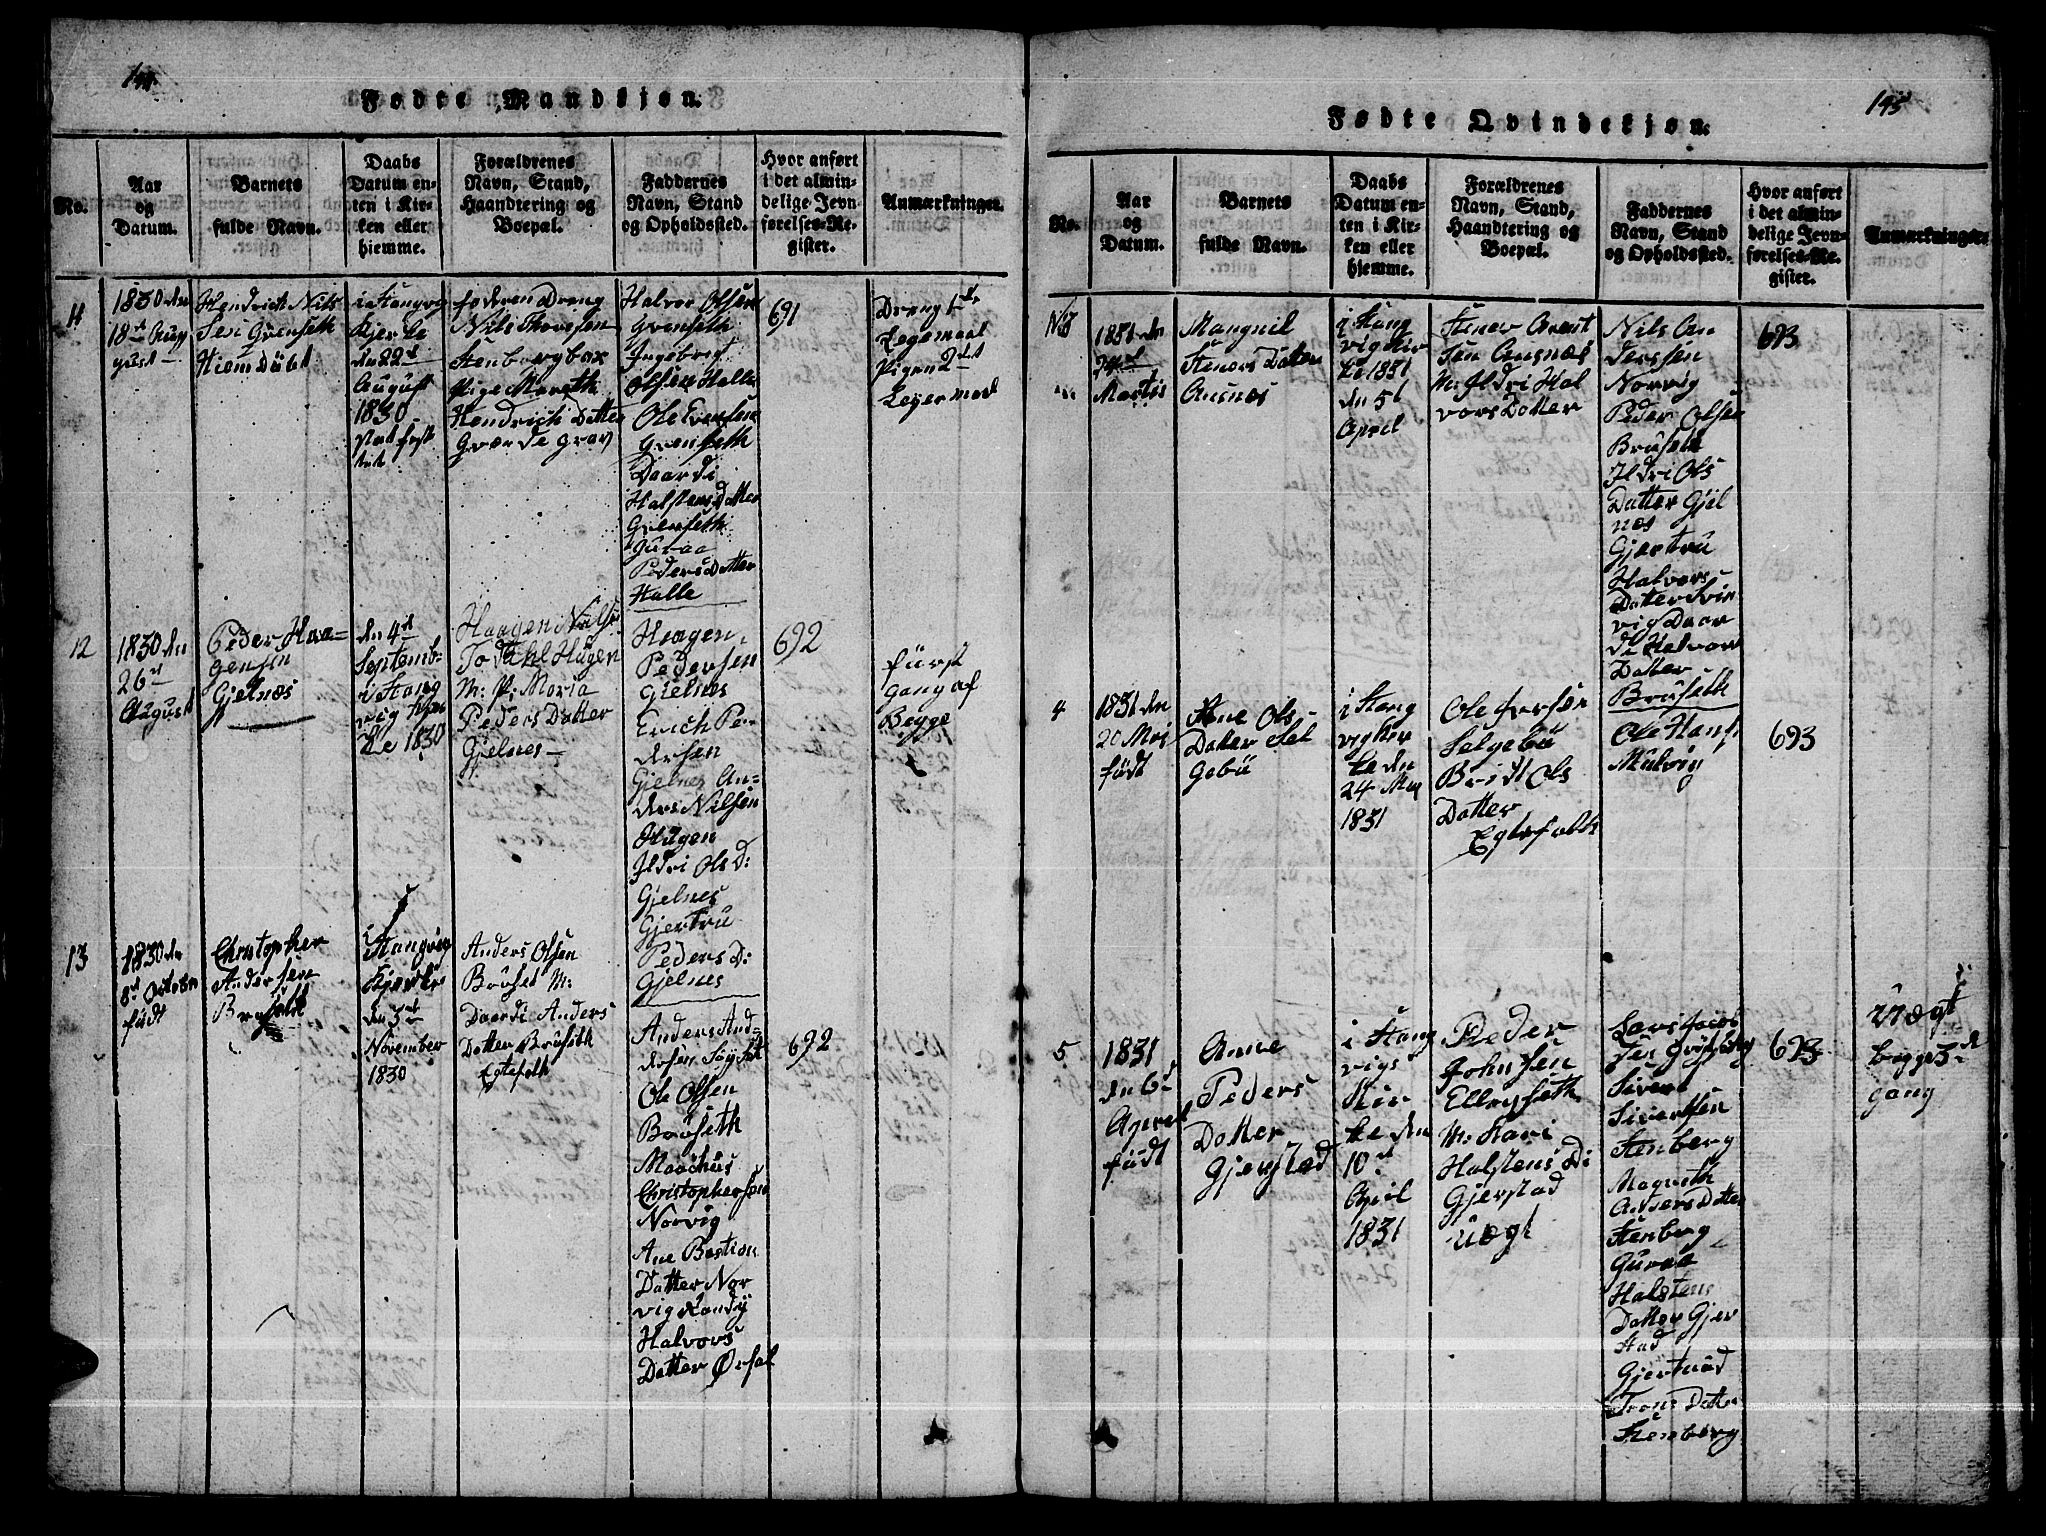 Fødte Mandkjøn.
No.
Aar
og
Datum.
Barnets
fulde Navn.
Daabs
Datum en-
ten i Kir-
ken eller
hjemme.
Forældrenes
Navn, Stand,
Haandtering og
Boepæl.
Faddernes
Navn, Stand
og Opholdssted.
Hvor anført
i det almin-
delige Jevn-
førelses-Re-
gister.
Anmærkninger.
11
1830 den
18de Aug
gust
Hendrich Nils
Sen Gvenseth
Hiem Döbt
i Stangvig
Kjerke
den 22de
August
1830
stad fest
Nils Thorsen
Pige Marith
Hendrich Datter
Halvor Olsen
Gvenseth
Ingeborg
Olsen Halle
Ole Eversen
Gvenseth
Daardi
Halstens Datter
Gvenseth
Guraa
Peders Datter
Halle
691
Dreng 1ste
Legemaal
Pigen 2det
Leyermaal
12
1830 den
26de
August
Peder Haa-
gensen
Gjelnæs
den 4de
Septemb
i Stang
vig Kjer
ke 1830
Haagen Nilsen
M: P: Maria
Peders Datter
Gjelnes
Haagen
Pedersen
Gjelnes
Erich Pe-
dersen
Gjelnes An-
ders Nilsen
Hugen
Ildri Ols D:
Gjelnes
Gjertru
Peders D:
Gjelnes
692
fürst
gang af
Begge
13
1830 den
8de October
födt
Christopher
Andersen
Bruseth
i Stangvig
Kjerke
den 3de
November
1830
Anders Olsen
Bruset M:
Daardi Anders
Datter Bruseth
Egtefolk
Anders And-
ersen
Ole Olsen
Bruseth
Christophersen
Norvig
Ane Bastian
Datter Nor
vig Randy
Halvors
Datter
692
195
Fødte Qvindekjøn.
No.
Aar
og
Datum.
Barnets
fulde Navn.
Daabs
Datum en-
ten i Kir-
ken eller
hjemme.
Forældrenes
Navn, Stand,
Haandtering og
Boepæl.
Faddernes
Navn, Stand
og Opholdssted.
Hvor anført
i det almin-
delige Jevn-
førelses-Re-
gister.
Anmærkninger.
1831 den
Martis
Mangnil
Stenors Datter
Ausnæs
i Stang
vig Kir
ke 1831
den 5t
April
Stenor Arent
Sen Ausnæs
M: Ildri Hal
vors Datter
Nils An
dersen
Norvig
Peder Olsen
Bruseth
Ildri Ols
Datter Gjel
næs
Gjertru
Halvors
Datter Svin
vig Daar
di Halvor
Datter
Bruseth
693
4
1831 den
20 Mai
födt
Ane Ols
Dater Sel
gebü
i Stang
vig Ker
ke den
24 Mai
1831
Selgebü
Bridt Ols
Datter
Egtefolk
Ole Hans
693
5
1831
den 6te
Aperel
födt
Anne
Peders
Datter
Gjerstad
i Stang
vigs
Kir
ke den
10de
April
1831
Peder
Johnsen
M: Kari
Halstens D:
Gjerstad
Uægt
Siver
Sivertsen
Stenberg
Magnith
Anders Datter
Stenberg
Guraa
Halstens
Datter Gjer
stad
Gjertrud
Trons Datter
Stenberg
693
Uægt
begge 3de
gang